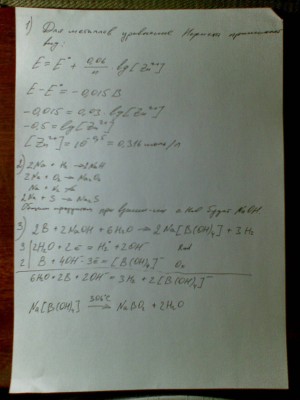 1) Для металлов уравнение Нернста принимает
вид:
E = E° + 0,06/n · lg[Zn²⁺]
E - E° = -0,015 В
-0,015 = 0,03 · lg[Zn²⁺]
-0,5 = lg[Zn²⁺]
[Zn²⁺] = 10^-0,5 = 0,316 моль/л
2) 2Na + H₂ → 2NaH
2Na + O₂ → Na₂O₂
Na + N₂ ≠
2Na + S → Na₂S
при с H₂O будет NaOH
3) 2B + 2NaOH + 6H₂O → 2Na[B(OH)₄] + 3H₂
3 | 2H₂O + 2e = H₂ + 2OH⁻ Red
2 | B + 4OH⁻ - 3e = [B(OH)₄]⁻ Ox
6H₂O + 2B + 2OH⁻ = 3H₂ + 2[B(OH)₄]⁻
Na[B(OH)₄] → NaBO₂ + 2H₂O